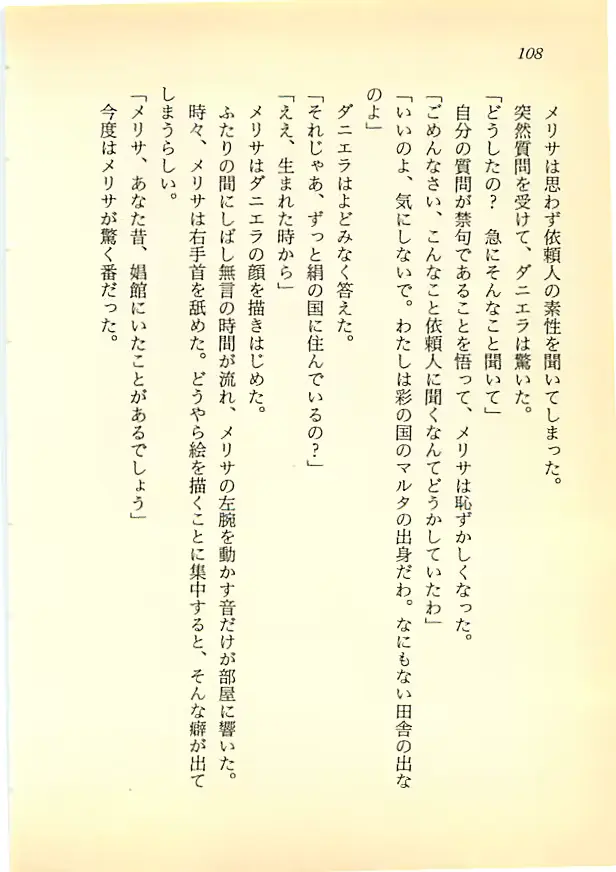 108
メリサは思わず依頼人の素性を聞いてしまった。
突然質問を受けて、ダニエラは驚いた。
「どうしたの？　急にそんなこと聞いて」
自分の質問が禁句であることを悟って、メリサは恥ずかしくなった。
「ごめんなさい、こんなこと依頼人に聞くなんてどうかしていたわ」
「いいのよ、気にしないで。わたしは彩の国のマルタの出身だわ。なにもない田舎の出な
のよ」
ダニエラはよどみなく答えた。
「それじゃあ、ずっと絹の国に住んでいるの？」
「ええ、生まれた時から」
メリサはダニエラの顔を描きはじめた。
ふたりの間にしばし無言の時間が流れ、メリサの左腕を動かす音だけが部屋に響いた。
時々、メリサは右手首を舐めた。どうやら絵を描くことに集中すると、そんな癖が出て
しまうらしい。
「メリサ、あなた昔、娼館にいたことがあるでしょう」
今度はメリサが驚く番だった。